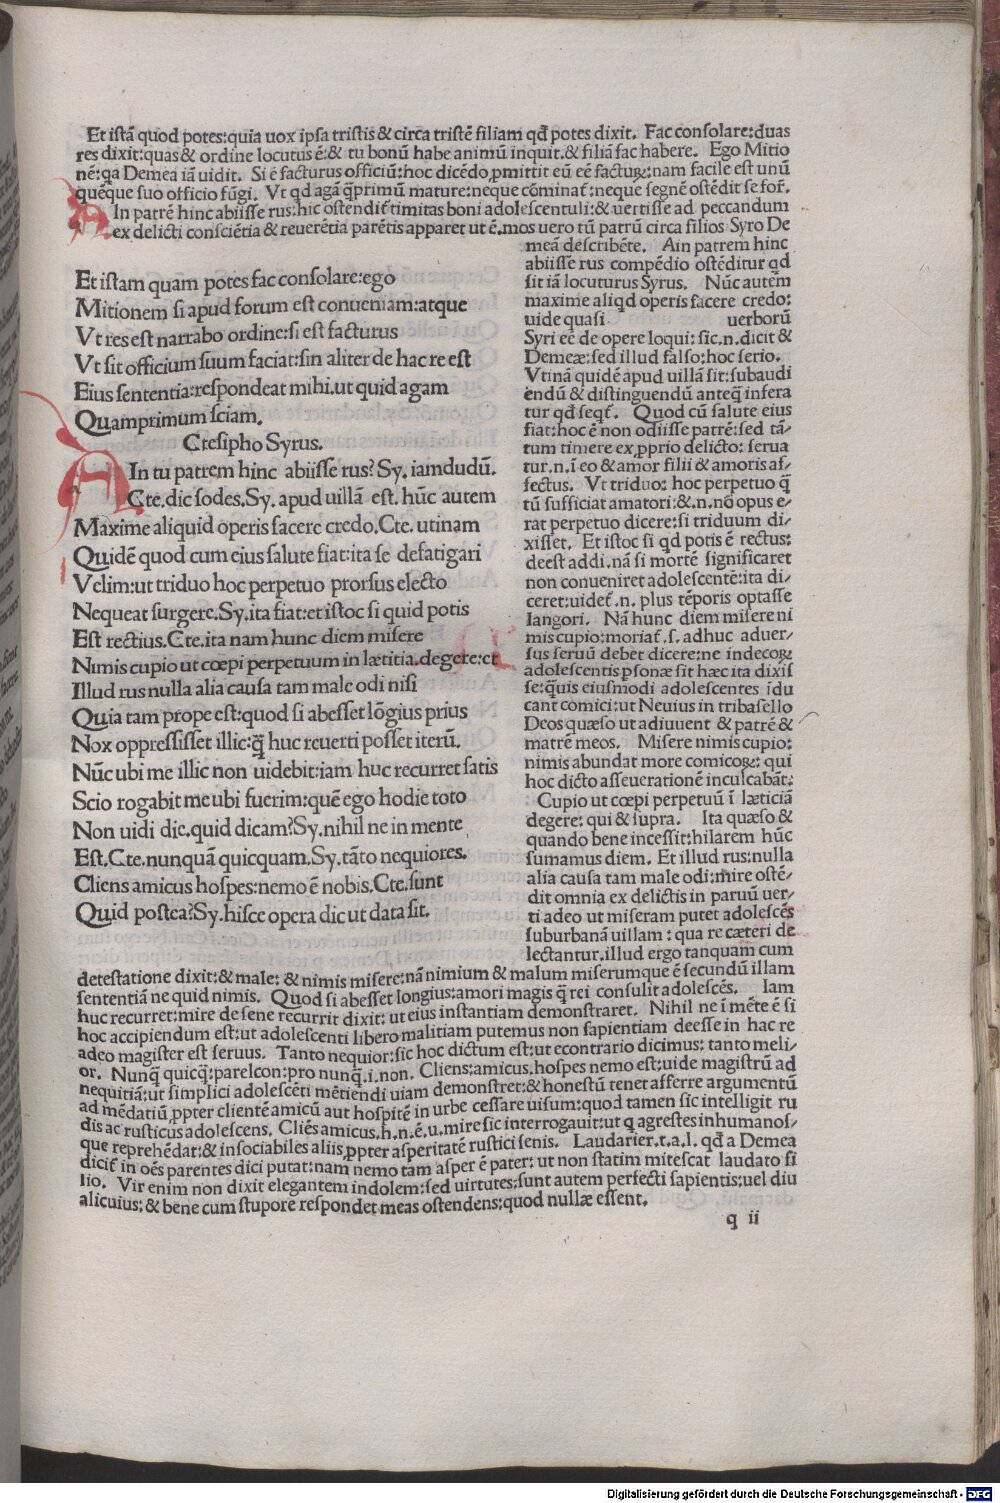 Et istā quod potes:quia uox ipsa tristis & circa tristē filiam qđ potes dixit. Fac consolare:duas
res dixit:quas & ordine locutus ē:& tu bonū habe animū inquit.& filiā fac habere. Ego Mitio
nē:qa Demea iā uidit. Si ē facturus officiū:hoc dicēdo ꝓmittit eū eē factuꝝ:nam facile est unū
quēque suo officio fūgi. Vt qd agā q̄primū mature:neque cōminat̄:neque segnē ostēdit se for̄.
AIn patrē hinc abiisse rus:hic ostendit̄ timitas boni adolescentuli:& uertisse ad peccandum
ex delicti consciētia & reuerētia parētis apparet ut ē.mos uero tū patrū circa filios Syro De
meā describēte. Ain patrem hinc
abiisse rus compēdio ostēditur qd
sit iā locuturus Syrus. Nūc autēm
maxime aliqd operis facere credo:
uide quasi uerborū
Syri eē de opere loqui: sic.n.dicit &
Demeæ:sed illud falso:hoc serio.
Vtinā quidē apud uillā sit:subaudi
endū & distinguendū anteq̄ infera
tur qđ seqt̄. Quod cū salute eius
fiat:hoc ē non odiisse patrē:sed tā-
tum timere ex ꝓprio delicto: serua
tur.n.ī eo & amor filii & amoris af-
fectus. Vt triduo: hoc perpetuo q̄
tū sufficiat amatori:&.n.nō opus e-
rat perpetuo dicere:si triduum di-
xisset. Et istoc si qd potis ē rectius:
deest addi.nā si mortē significaret
non conueniret adolescentē:ita di-
ceret:uidet̄.n. plus tēporis optasse
langori. Nā hunc diem misere ni
mis cupio:moriat̄.s. adhuc aduer-
sus seruū debet dicere:ne indecoꝝ
adolescentis ꝑsonæ sit hæc ita dixis
se:q̄uis eiusmodi adolescentes īdu
cant comici:ut Neuius in tribasello
Deos quæso ut adiuuent & patrē &
matrē meos. Misere nimis cupio:
nimis abundat more comicoꝝ: qui
hoc dicto asseuerationē inculcabāt:
Cupio ut cœpi perpetuū ī læticiā
degere: qui & supra. Ita quæso &
quando bene incessit:hilarem hūc
sumamus diem. Et illud rus:nulla
alia causa tam male odi:mire ostē-
dit omnia ex delictis in paruū uer-
ti adeo ut miseram putet adolescēs
suburbanā uillam : qua re cæteri de
lectantur.illud ergo tanquam cum
Et istam quam potes fac consolare:ego
Mitionem si apud forum est conueniam:atque
Vt res est narrabo ordine:si est facturus
Vt sit officium suum faciat:sin aliter de hac re est
Eius sententia:respondeat mihi.ut quid agam
Quamprimum sciam.
Ctesipho Syrus.
AIn tu patrem hinc abiisse rus? Sy. iamdudū.
Cte.dic sodes.Sy. apud uillā est. hūc autem
Maxime aliquid operis facere credo.Cte. utinam
Quidē quod cum eius salute fiat:ita se defatigari
Velim:ut triduo hoc perpetuo prorsus e lecto
Nequeat surgere.Sy.ita fiat:et istoc si quid potis
Est rectius.Cte.ita nam hunc diem misere
Nimis cupio ut cœpi perpetuum in lætitia.degere:et
Illud rus nulla alia causa tam male odi nisi
Quia tam prope est:quod si abesset lōgius prius
Nox oppressisset illic:q̄ huc reuerti posset iterū.
Nūc ubi me illic non uidebit:iam huc recurret satis
Scio rogabit me ubi fuerim:quē ego hodie toto
Non uidi die.quid dicam?Sy.nihil ne in mente
Est.Cte.nunquā quicquam.Sy.tāto nequiores.
Cliens amicus hospes:nemo ē nobis.Cte.sunt
Quid postea?Sy.hisce opera dic ut data sit.
detestatione dixit:& male: & nimis misere:nā nimium & malum miserumque ē secundū illam
sententiā ne quid nimis. Quod si abesset longius:amori magis q̄ rei consulit adolescēs. Iam
huc recurret:mire de sene recurrit dixit: ut eius instantiam demonstraret. Nihil ne ī mēte ē si
hoc accipiendum est:ut adolescenti libero malitiam putemus non sapientiam deesse in hac re
adeo magister est seruus. Tanto nequior:sic hoc dictum est:ut econtrario dicimus: tanto meli-
or. Nunq̄ quicq̄:parelcon:pro nunq̄.i.non. Cliens:amicus.hospes nemo est:uide magistrū ad
nequitiā:ut simplici adolescēti mētiendi uiam demonstret:& honestū tenet afferre argumentū
ad mēdatiū ꝓpter clientē amicū aut hospitē in urbe cessare uisum:quod tamen sic intelligit ru
dis ac rusticus adolescens. Cliēs amicus.h.n.ē.u.mire sic interrogauit:ut q agrestes inhumanos-
que reprehēdat:& insociabiles aliis ꝓpter asperitatē rustici senis. Laudarier.t.a.l. qđ a Demea
dicit̄ in oēs parentes dici putat:nam nemo tam asper ē pater: ut non statim mitescat laudato fi
lio. Vir enim non dixit elegantem indolem:sed uirtutes:sunt autem perfecti sapientis:uel diu
alicuius:& bene cum stupore respondet meas ostendens:quod nullæ essent.
q ii
Digitalisierung gefördert durch die Deutsche Forschungsgemeinschaft - DFG